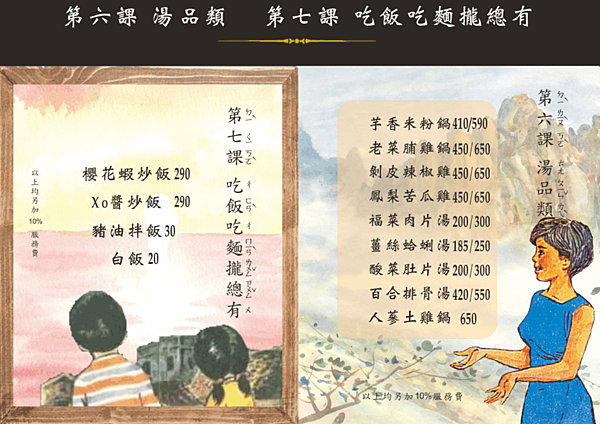 第六課 湯品類 第七課 吃飯吃麵攏總有
第七課 吃飯吃麵攏總有
櫻花蝦炒飯 290
Xo醬炒飯 290
豬油拌飯 30
白飯 20
以上均另加10%服務費
第六課 湯品類
芋香米粉鍋 410/590
老菜脯雞鍋 450/650
剝皮辣椒雞 450/650
鳳梨苦瓜雞 450/650
福菜肉片湯 200/300
薑絲蛤蜊湯 185/250
酸菜肚片湯 200/300
百合排骨湯 420/550
人蔘土雞鍋 650
以上均另加10%服務費